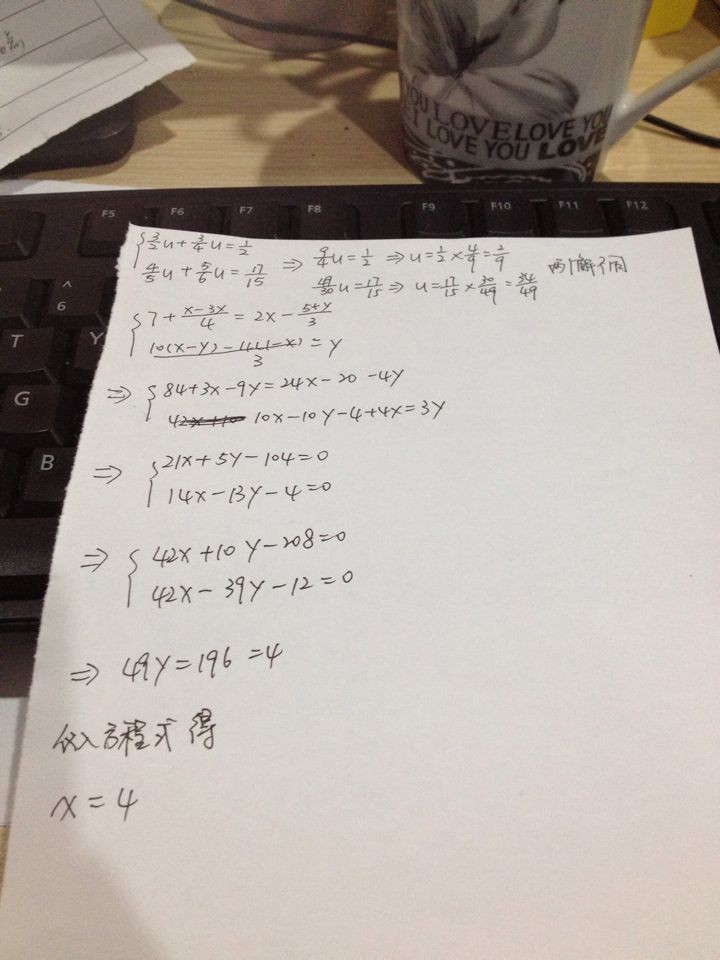 F5 F6 F7 F8 F9 F10 F11 F12
YOU LOVELOVE YOU
I LOVE YOU LOVE
^ 6
T Y
G
B
{ 3/2 u + 3/4 u = 1/2 ⇒ 9/4 u = 1/2 ⇒ u = 1/2 × 4/9 = 2/9
4/5 u + 5/6 u = 17/15 49/30 u = 17/15 ⇒ u = 17/15 × 30/49 = 34/49 两解不同
{ 7 + (x-3y)/4 = 2x - (5+y)/3
(10(x-y)-4(1-x))/3 = y
⇒ { 84+3x-9y=24x-20-4y
10x-10y-4+4x=3y
⇒ { 21x+5y-104=0
14x-13y-4=0
⇒ { 42x+10y-208=0
42x-39y-12=0
⇒ 49y=196 =4
代入方程式得
x=4